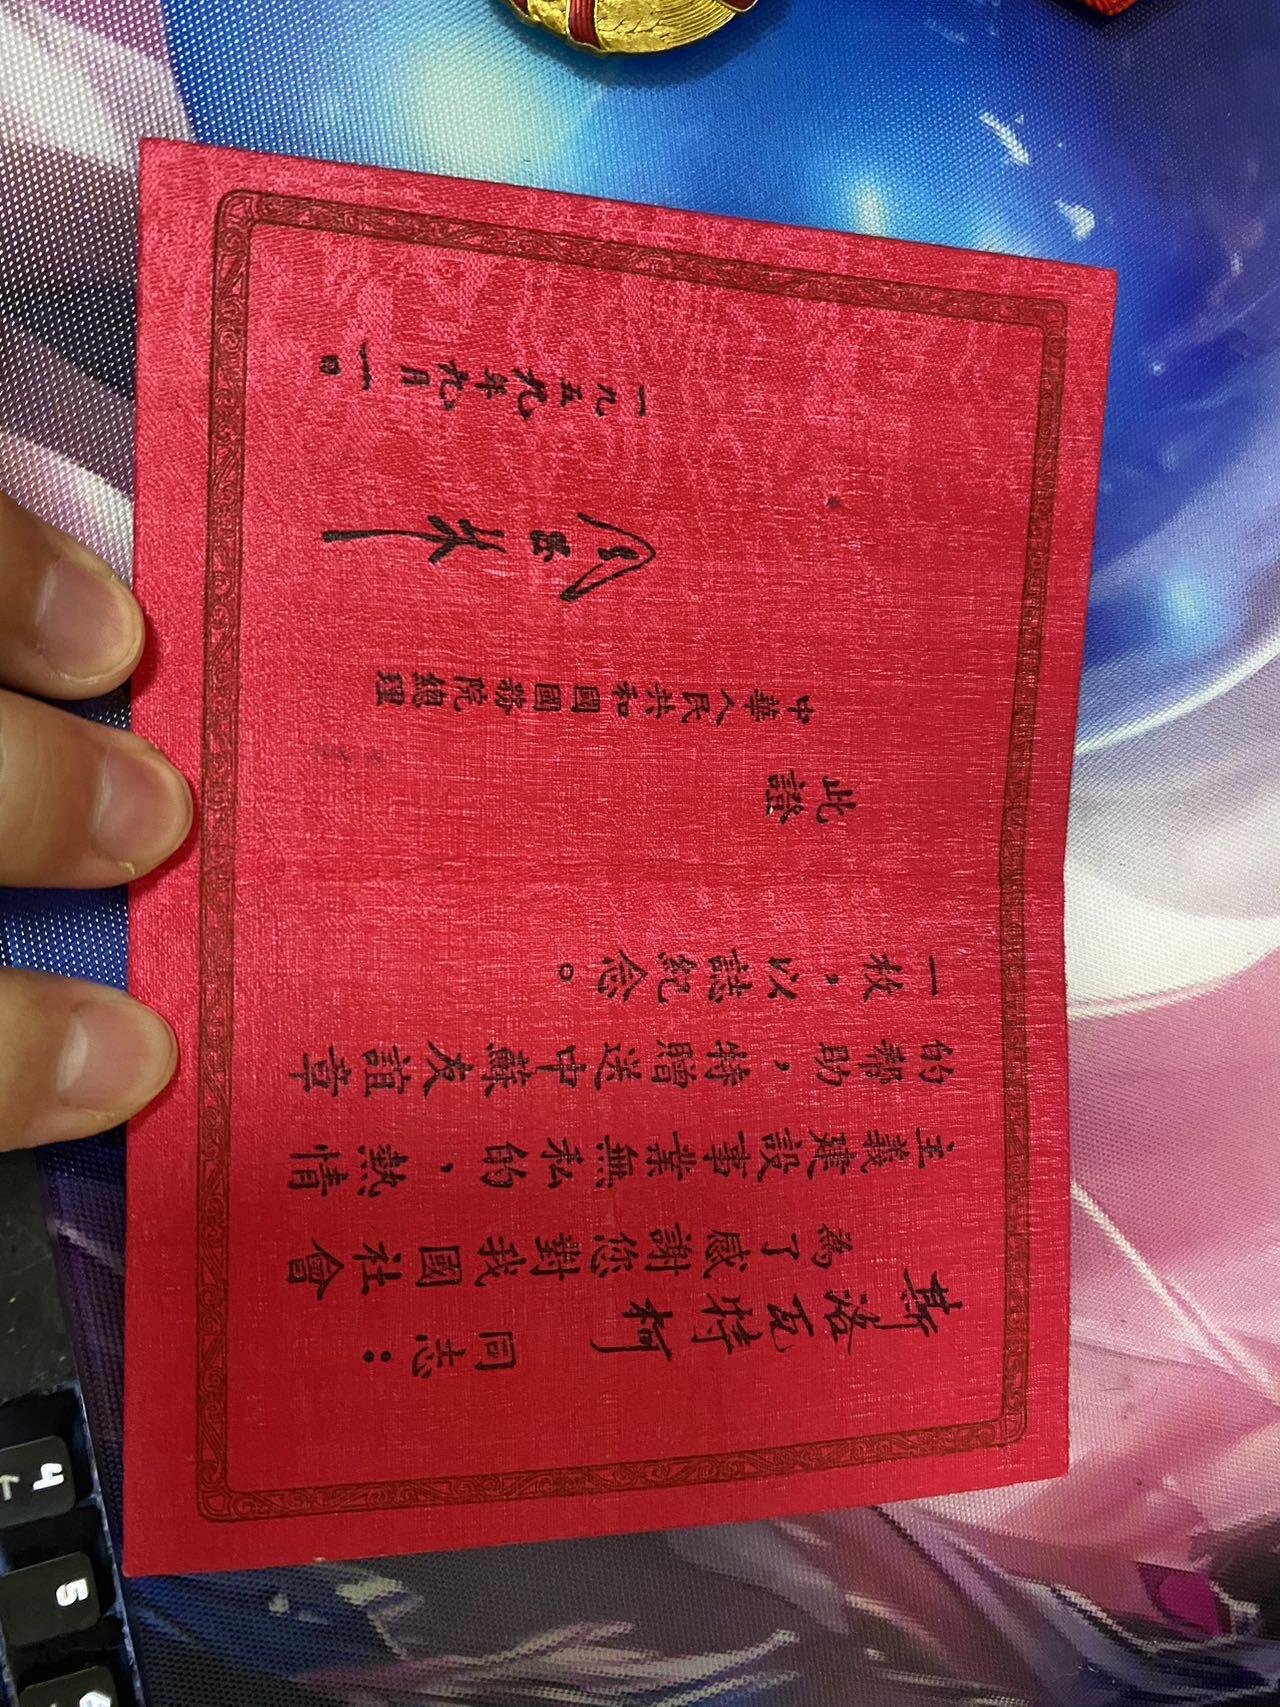 斯洛瓦特柯 同志：
為了感謝您對我國社會
主義建設事業無私的，熱情
的幫助，特贈送中蘇友誼章
一枚，以誌紀念。
此證
中華人民共和國國務院總理
周恩来
一九五九年九月一日
4
5